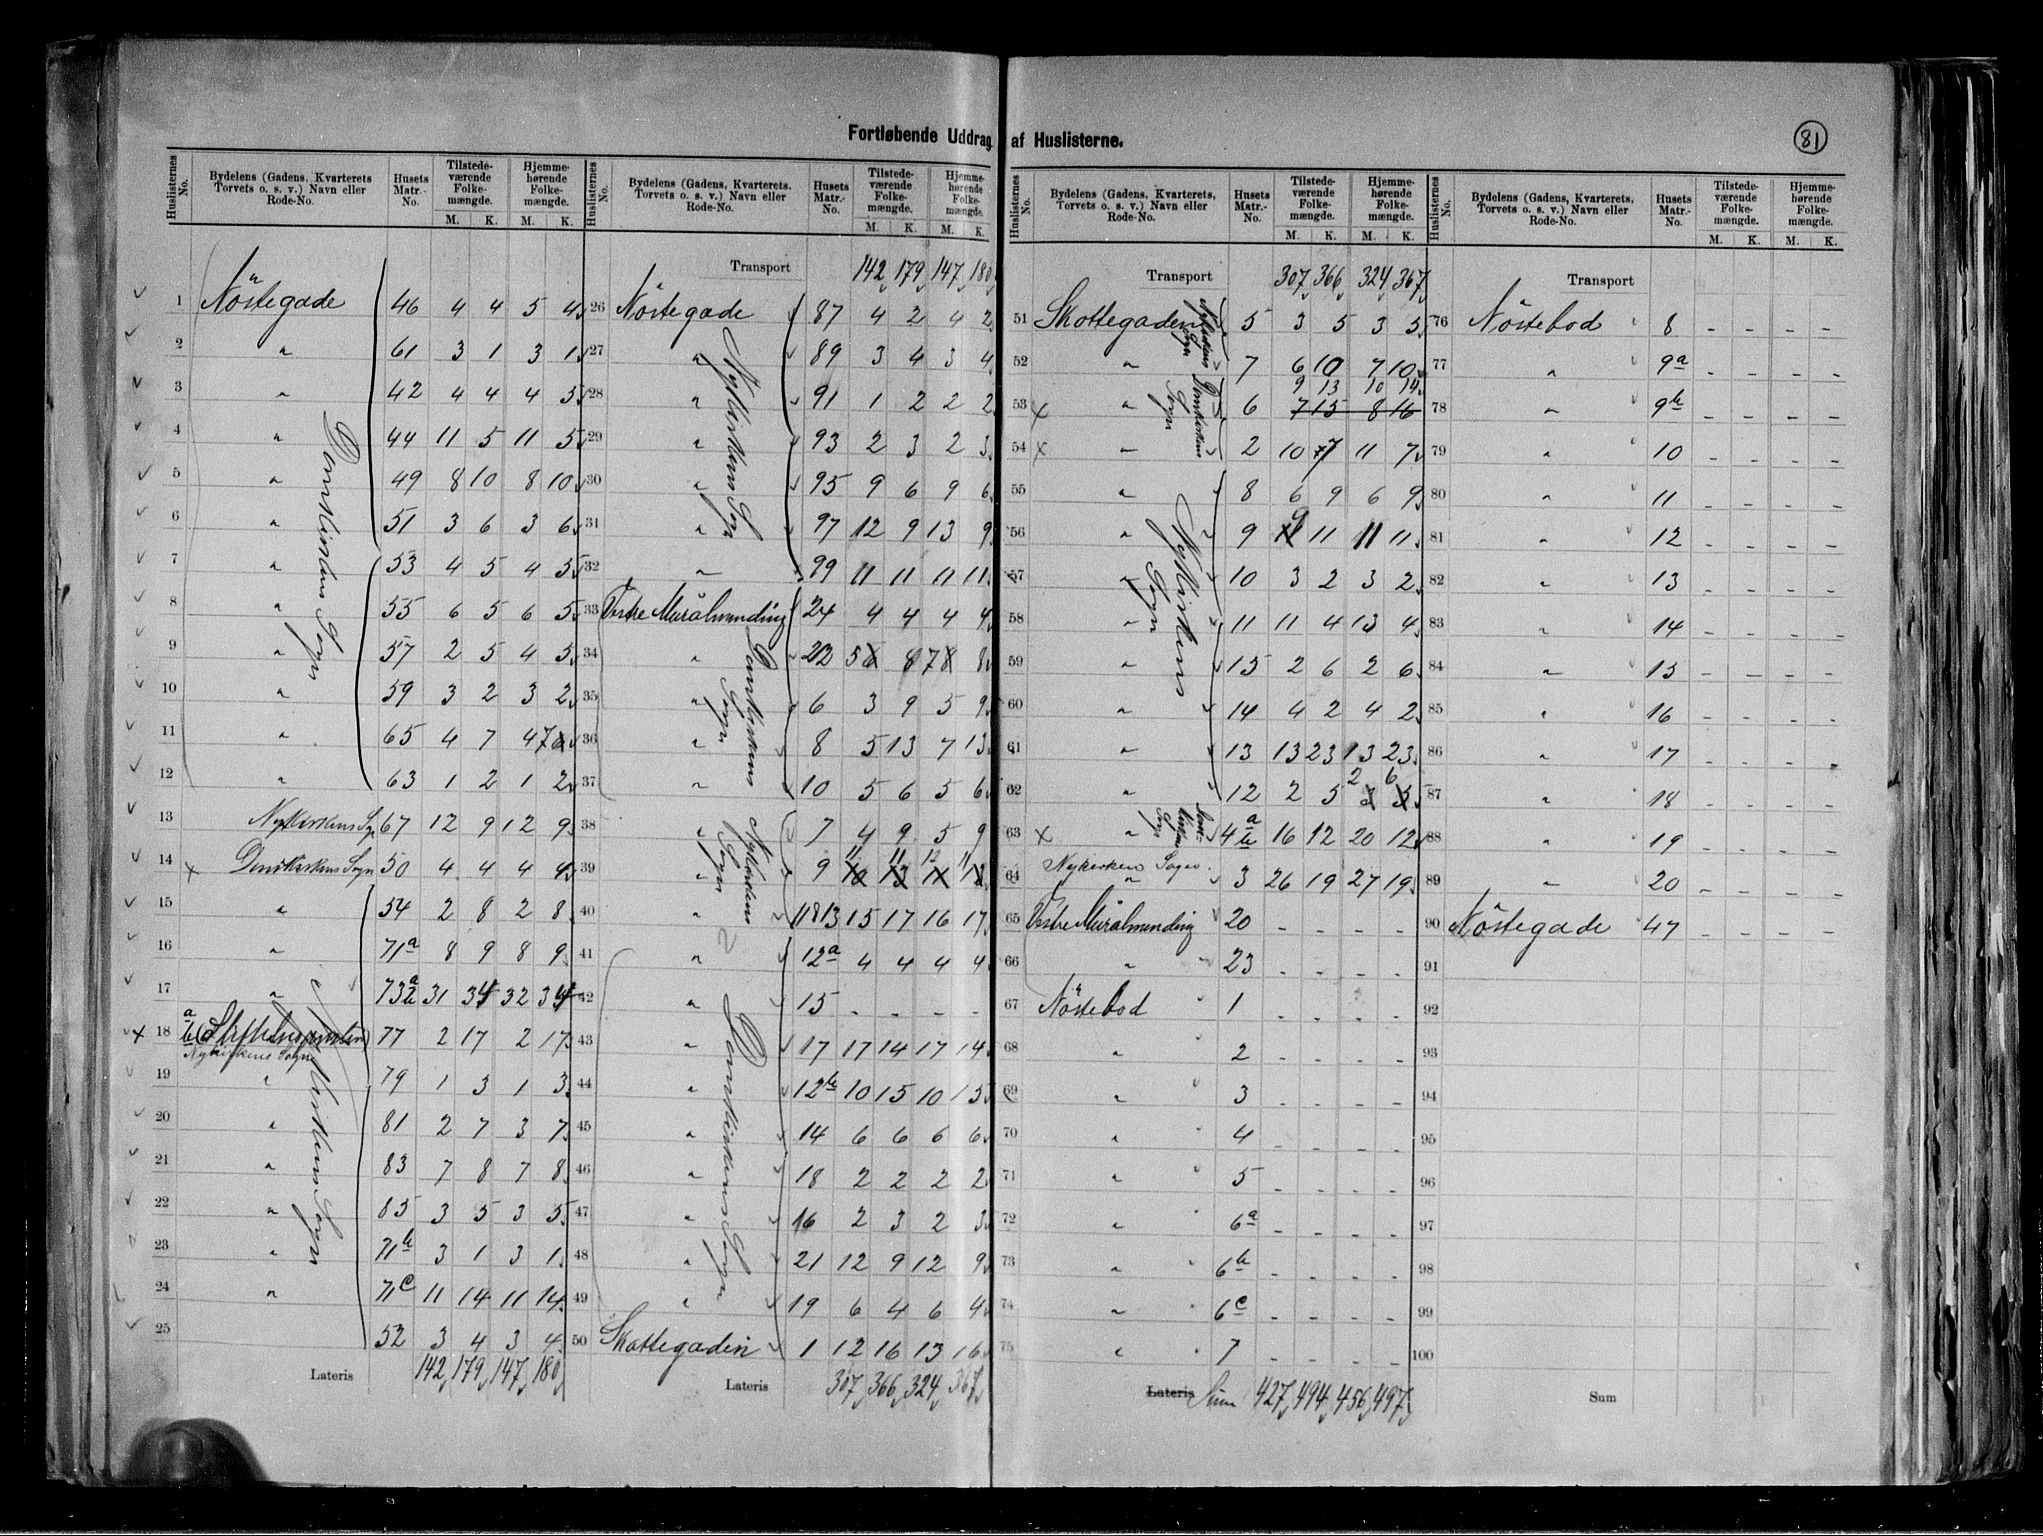 Fortløbende Uddrag af Huslisterne.
81
Huslisternes No. | Bydelens (Gadens, Kvarterets, Torvets o. s. v.) Navn eller Rode-No. | Husets Matr.-No. | Tilstedeværende Folkemængde. M. K. | Hjemmehørende Folkemængde. M. K.
1 Nöstegade 46 4 4 5 4
2 " 61 3 1 3 1
3 " 42 4 4 4 5
4 " 44 11 5 11 5
5 " 49 8 10 8 10
6 " 51 3 6 3 6
7 " 53 4 5 4 5
8 " 55 6 5 6 5
9 " 57 2 5 4 5
10 " 59 3 2 3 2
11 " 65 4 7 4 7
12 " 63 1 2 1 2
Domkirkens Sogn
13 Nykirkens Sogn 67 12 9 12 9
14 Domkirkens Sogn 50 4 4 4 4
15 " 54 2 8 2 8
16 " 71a 8 9 8 9
17 " 73 a b 31 34 32 34
18 a b 77 2 17 2 17
Nykirkens Sogn
19 " 79 1 3 1 3
20 " 81 2 7 3 7
21 " 83 7 8 7 8
22 " 85 3 5 3 5
23 " 71b 3 1 3 1
24 " 71c 11 14 11 14
25 52 3 4 3 4
Nykirkens Sogn
Lateris 142 179 147 180
Huslisternes No. | Bydelens (Gadens, Kvarterets, Torvets o. s. v.) Navn eller Rode-No. | Husets Matr.-No. | Tilstedeværende Folkemængde. M. K. | Hjemmehørende Folkemængde. M. K.
Transport 142 179 147 180
26 Nöstegade 87 4 2 4 2
27 " 89 3 4 3 4
28 " 91 1 2 2 2
29 " 93 2 3 2 3
30 " 95 9 6 9 6
31 " 97 12 9 13 9
32 " 99 11 11 11 11
Nykirkens Sogn
33 Vestre Muralmending 24 4 4 4 4
34 " 22 5 8 7 8
35 " 6 3 9 5 9
36 " 8 5 13 7 13
37 " 10 5 6 5 6
Domkirkens Sogn
38 " 7 4 9 5 9
39 " 9 11 11 12 11
40 " 11 & 13 15 17 16 17
Nykirkens Sogn
41 " 12a 4 4 4 4
42 " 15 - - - -
43 " 17 17 14 17 14
44 " 12b 10 15 10 15
45 " 14 6 6 6 6
46 " 18 2 2 2 2
47 " 16 2 3 2 3
48 " 21 12 9 12 9
49 " 19 6 4 6 4
50 Skottegaden 1 12 16 13 16
Domkirkens Sogn
Lateris 307 366 324 367
Huslisternes No. | Bydelens (Gadens, Kvarterets, Torvets o. s. v.) Navn eller Rode-No. | Husets Matr.-No. | Tilstedeværende Folkemængde. M. K. | Hjemmehørende Folkemængde. M. K.
Transport 307 366 324 367
51 Skottegaden 5 3 5 3 5
52 " 7 6 10 7 10
Nykirkens Sogn
9 13 10 14
53 " 6 7 15 8 16
54 " 2 10 7 11 7
Domkirkens Sogn
55 " 8 6 9 6 9
56 " 9 9 11 11 11
57 " 10 3 2 3 2
58 " 11 11 4 13 4
59 " 15 2 6 2 6
60 " 14 4 2 4 2
61 " 13 13 23 13 23
62 " 12 2 5 2 6
Nykirkens Sogn
63 " 4 a b 16 12 20 12
64 Nykirkens Sogn 3 26 19 27 19
65 Vestre Muralmending 20 - - - -
66 " 23 - - - -
67 Nöstebod 1 - - - -
68 " 2 - - - -
69 " 3 - - - -
70 " 4 - - - -
71 " 5 - - - -
72 " 6a - - - -
73 " 6b - - - -
74 " 6c - - - -
75 " 7 - - - -
Lateris Sum 427 494 456 497
Huslisternes No. | Bydelens (Gadens, Kvarterets, Torvets o. s. v.) Navn eller Rode-No. | Husets Matr.-No. | Tilstedeværende Folkemængde. M. K. | Hjemmehørende Folkemængde. M. K.
Transport
76 Nöstebod 8 - - - -
77 " 9a - - - -
78 " 9b - - - -
79 " 10 - - - -
80 " 11 - - - -
81 " 12 - - - -
82 " 13 - - - -
83 " 14 - - - -
84 " 15 - - - -
85 " 16 - - - -
86 " 17 - - - -
87 " 18 - - - -
88 " 19 - - - -
89 " 20 - - - -
90 Nöstegade 47 - - - -
91
92
93
94
95
96
97
98
99
100
Sum